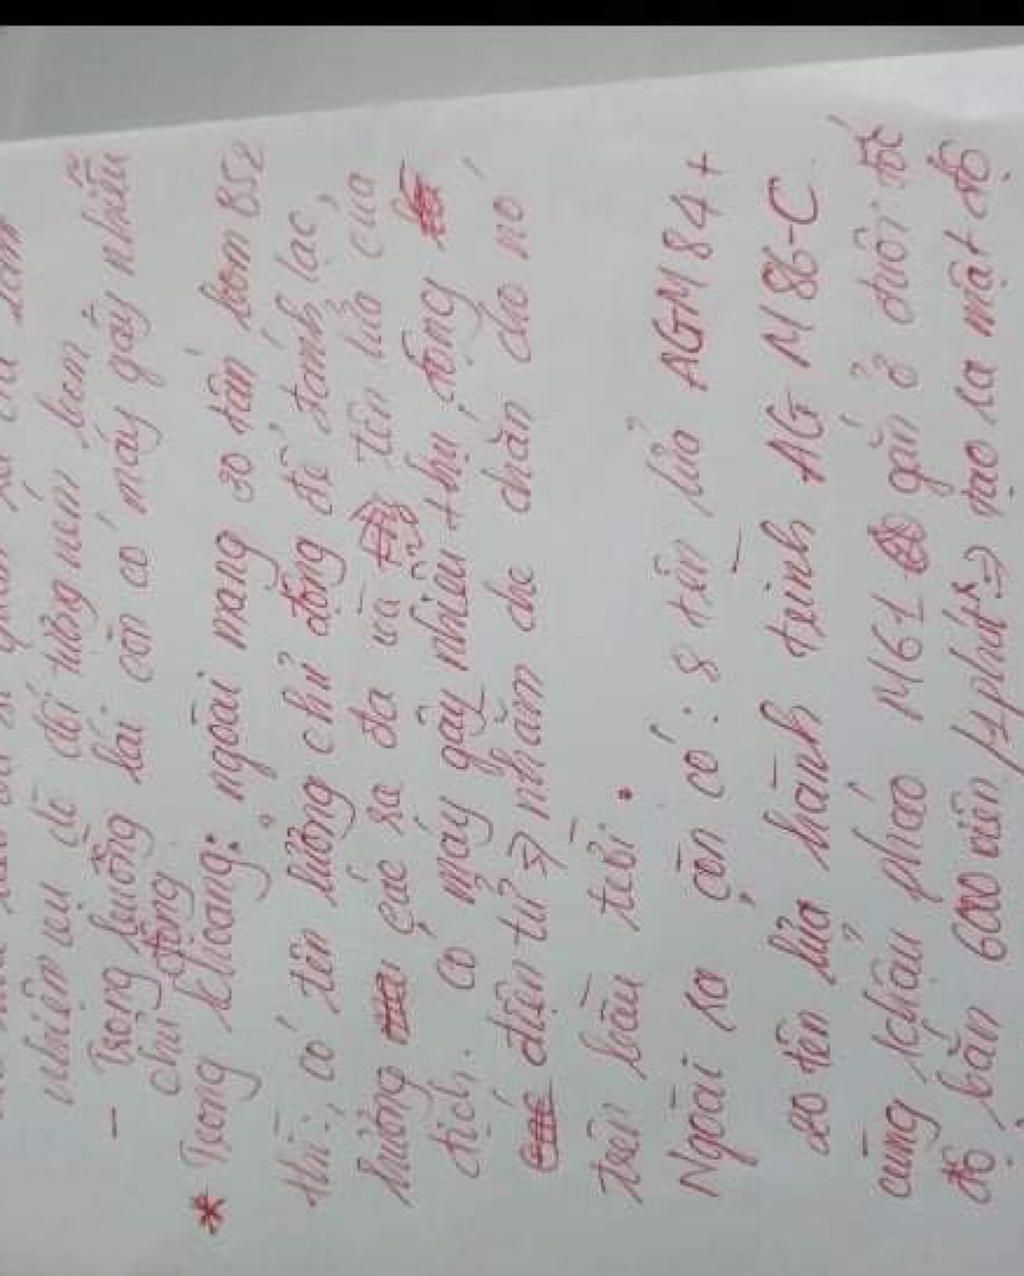 nhiệm vụ dẽ đối tượng ném bom
- Trong buồng lái còn có máy gây nhiễu
chủ động
* Trong khoang: ngoài mang 30 tấn bom B52
thì: có tên lửa chủ động để đánh lạc,
hướng các ra đa và tên lửa của
địch. Có máy gây nhiễu thụ động
điện tử => nhằm che chăn cho nó
trên bầu trời.
Ngoài ra còn có: 8 tên lửa AGM 84 +
20 tên lửa hành trình AG M 86-C
cùng 1 khẩu pháo M61 gắn ở đuôi tốc
độ bắn 6000 viên /1 phút => tạo ra mật độ